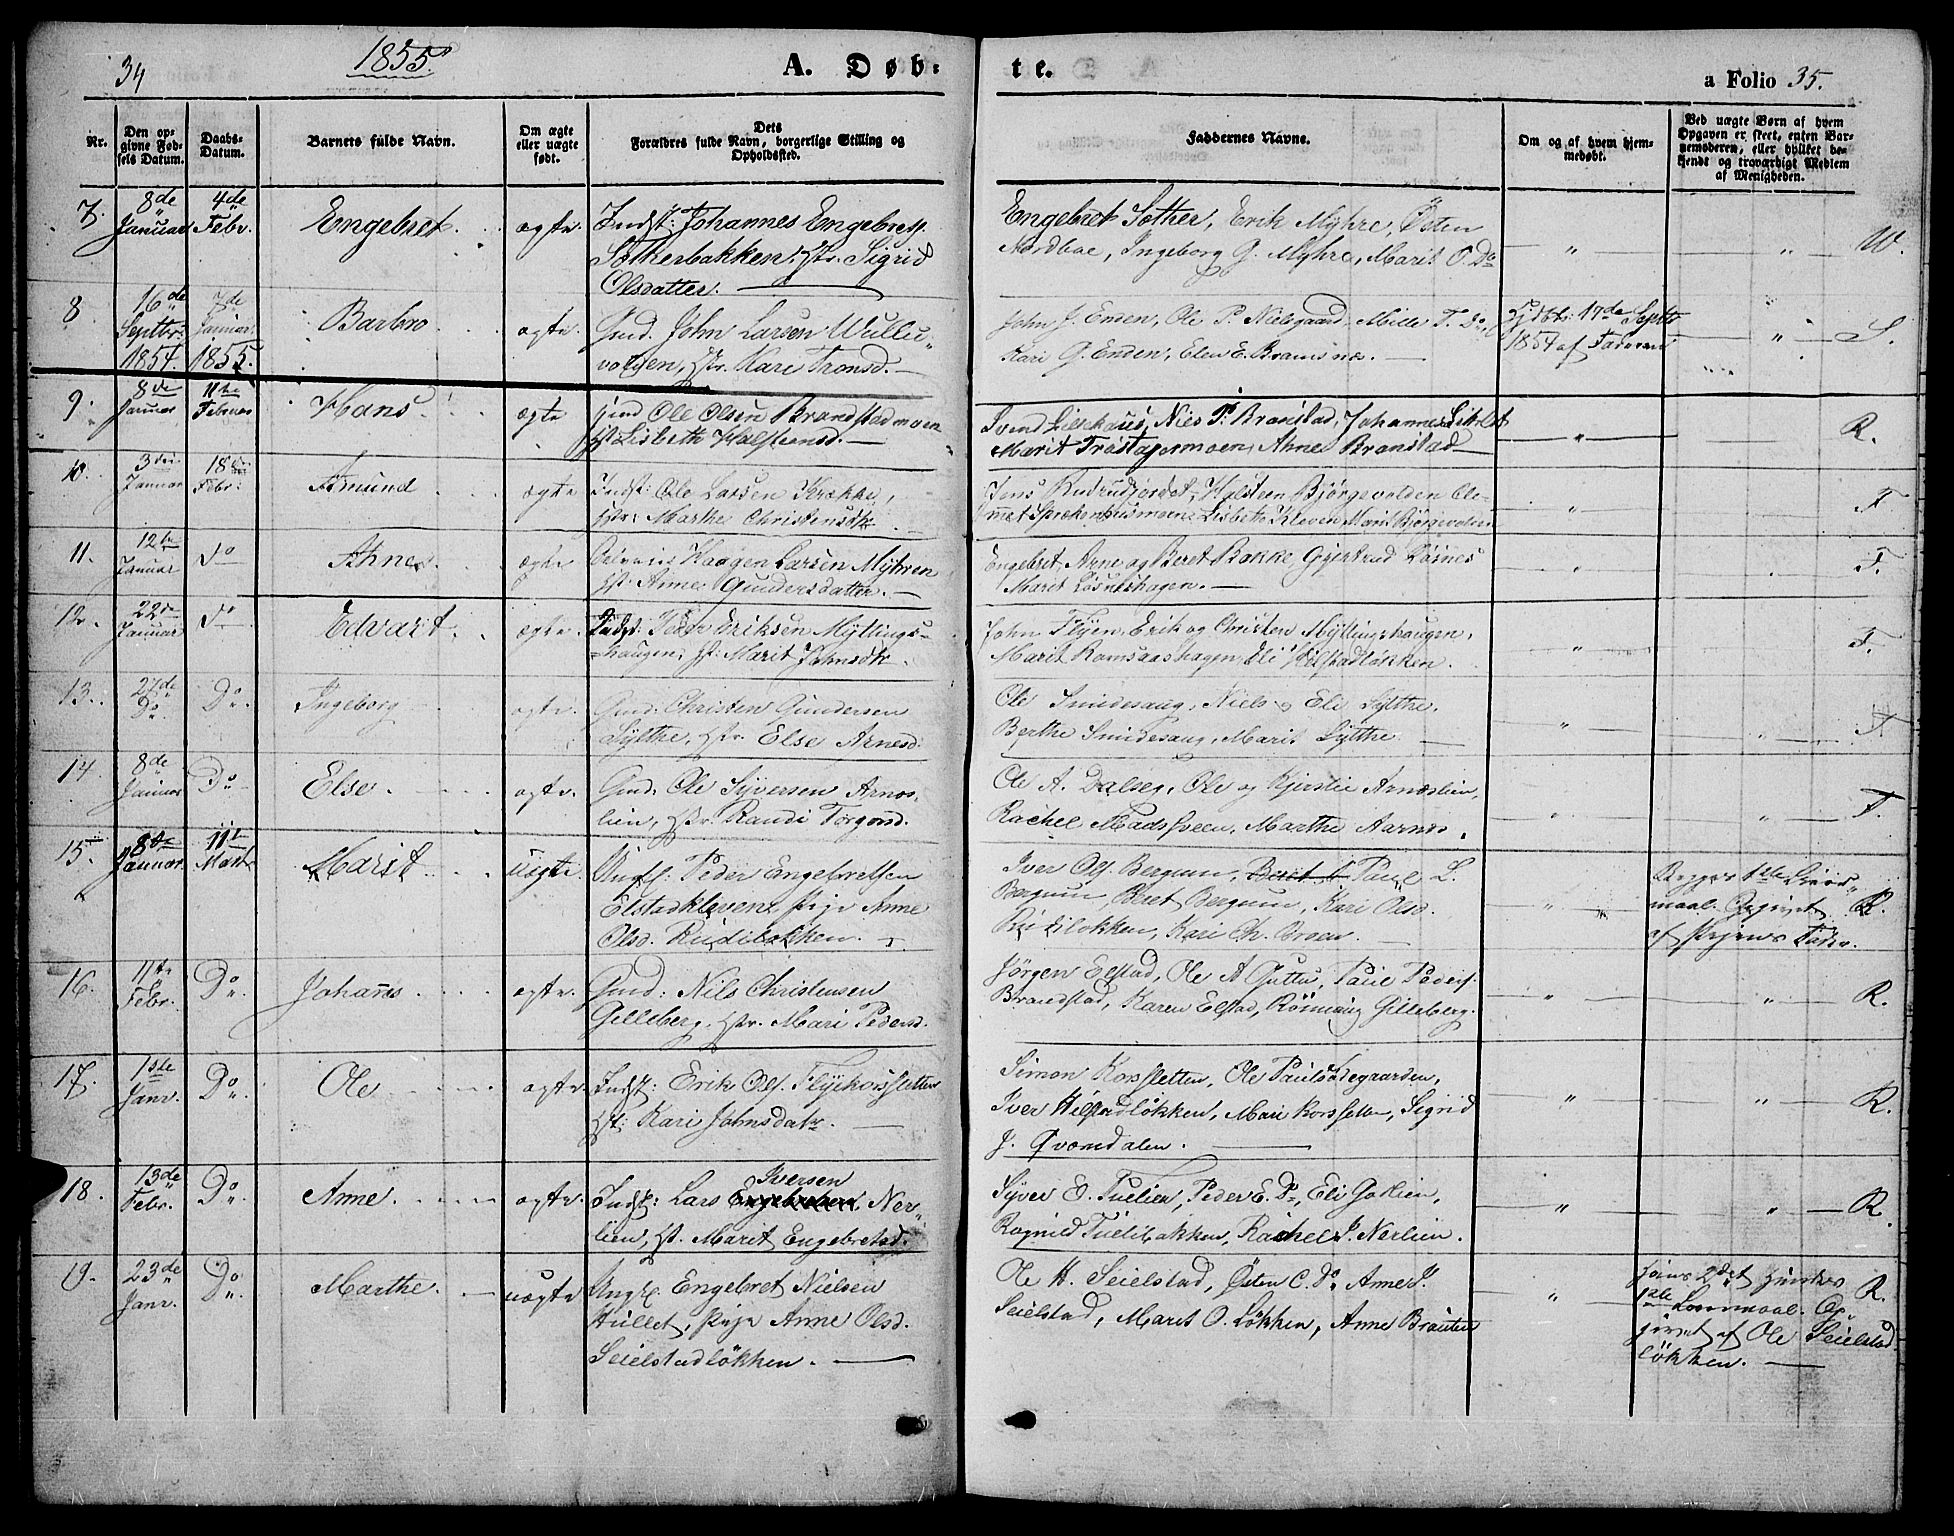 34
1855.
A. Døb-
te.
a Folio 35.
Nr.
Den op-
givne Fød-
sels Datum.
Daabs-
Datum.
Barnets fulde Navn.
Om ægte
eller uægte
født.
Dets
Forældres fulde Navn, borgerlige Stilling og
Opholdssted.
Faddernes Navne.
Om og af hvem hjem-
medøbt.
Ved uægte Børn af hvem
Opgaven er skeet, enten Bar-
nemoderen, eller hvilket be-
kjendt og troværdigt Medlem
af Menigheden.
7. 8de 4de
Januar Febr. Engebret ægte. Indst: Johannes Engebrets.
Sotherbakken, Hstr. Sigrid
Olsdatter.
Engebret Sother, Erik Myhre, Østen
Nordboe, Ingeborg G. Myhre, Marit O. Do
" " W.
8 16de 7de
Septbr. Januar Barbro ægte. Gmd. John Larsen Wullu-
1854. 1855. volden, Hstr. Kari Tronsd.
John J. Emen, Ole P. Nielsgaard, Mille T. Do,
Kari G. Enden, Elen E.
Hjdbt: 17de Septb
1854 af Faderen
" S.
9. 8de 11te
Januar Februar Hans. ægte Gmd Ole Olsen Brandstadmoen
H. Lisbeth Halsteensd.
Svend Lilsehaus, Niels P. Branstad, Johannes
Marit Trostagermoen, Ahne Branstad
" R.
10. 3die 18de
Januar Febr: Amund ægte Indst: Ole Larsen Krekke,
Hstr: Marthe Christensdtr
Jens Rudrudjordet, Halsteen Bjørgevolden Cle-
met Sprækenhusmoen, Lisbeth Kleven Marit Bjørgevolden
" F
11. 12te
Januar do Ahne ægte Haagen Larsen Myhren
H. Anne Gundersdatter.
Engebret, Arne og Beret Bakke, Gjertrud Løsnes
Marit Løsneshagen.
" F.
12. 22de
Januar do Edvart ægte. Indst: Peder Eriksen Myttings-
haugen, H: Marit Johnsdtr.
John Flyen, Erik og Christen Myttingshaugen,
Marit Ramsaashagen, Eli Kilstadløkken.
" F.
13. 27de
Do. Do. Ingeborg ægte. Gmd: Christen Gundersen
Sylthe, Hstr. Else Arnesd.
Ole Smidesang, Niels & Eli Sylthe.
Berthe Smidesang, Marit Sylthe
" " F
14. 8de
Januar Do Else. ægte. Gmd: Ole Syversen Arnes-
lien, Hstr. Randi Torgersd.
Ole A. Dalseg, Ole og Kjerstie Arneslien,
Rachel Madssveen, Marthe Aarnes.
" " F.
15. 8de 11te
Januar. Marts Marit uægte. Ungk: Peder Engebretsen
Elstadkleven, Pige Anne
Olsd. Rudiløkken.
Iver Ols. Bergum, Paul L.
Bergum, Beret Bergum, Kari Olsd.
Rudiløkken, Kari Ch. Broen
"
Begges 1ste Leier-
maal. Opgivet
af Pigens Fader.
R.
16. 11te
Febr. Do Johannes ægte. Gmd: Nils Christensen
Gilleberg, Hstr. Mari Pedersd.
Jørgen Elstad, Ole A Guttu, Paul Peders.
Brandstad, Karen Elstad, Rønnaug Gilleberg.
" " R.
17. 1ste
Janr. Do Ole ægte. Indst: Erik Ols. Flyekorssletten
Hst: Kari Johnsdatr.
Simon Korssletten, Ole Paulsødegaarden,
Iver Kilstadløkken, Mari Korssetten, Sigrid
J. Qvamdalen.
" " R.
18. 13de
Febr. Do Anne. ægte. Indst: Lars Iversen Ner-
lien, Hst. Marit Engebretsd.
Syver E. Tuelien, Peder E. Do, Eli
Ragnild Tueliløkken, Rachel J. Nerlien.
" " R.
19. 23de
Janr. Do Marthe. uægte Ungk. Engebret Nielsen
Hullet, Pige Anne Olsd.
Seielstadløkken.
Ole H. Seielstad, Østen C. Do Anne S.
Seielstad, Marit O. Løkken, Anne Brauten
"
2det hendes
1ste Leiermaal. Op-
givet af Ole Seielstad-
løkken.
R.